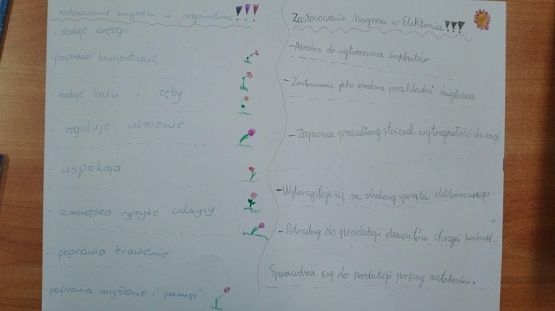 zastosowanie magnezu w organizmie!!!
- dodaje energii
- poprawia koncentrację
- buduje kości i zęby
- reguluje ciśnienie
- uspokaja
- zmniejsza ryzyko cukrzycy
- poprawia trawienie
- poprawia myślenie i pamięć
Zastosowanie Magnezu w Elektronice!!!
- do wytworzenia
- Zastosowanie jako
- Zapewnia stosunek wytrzymałości do wagi
- Wykorzystuje się na obudowy sprzętu elektronicznego
- Potrzebny do produkcji elementów
Sprawdza się do produkcji